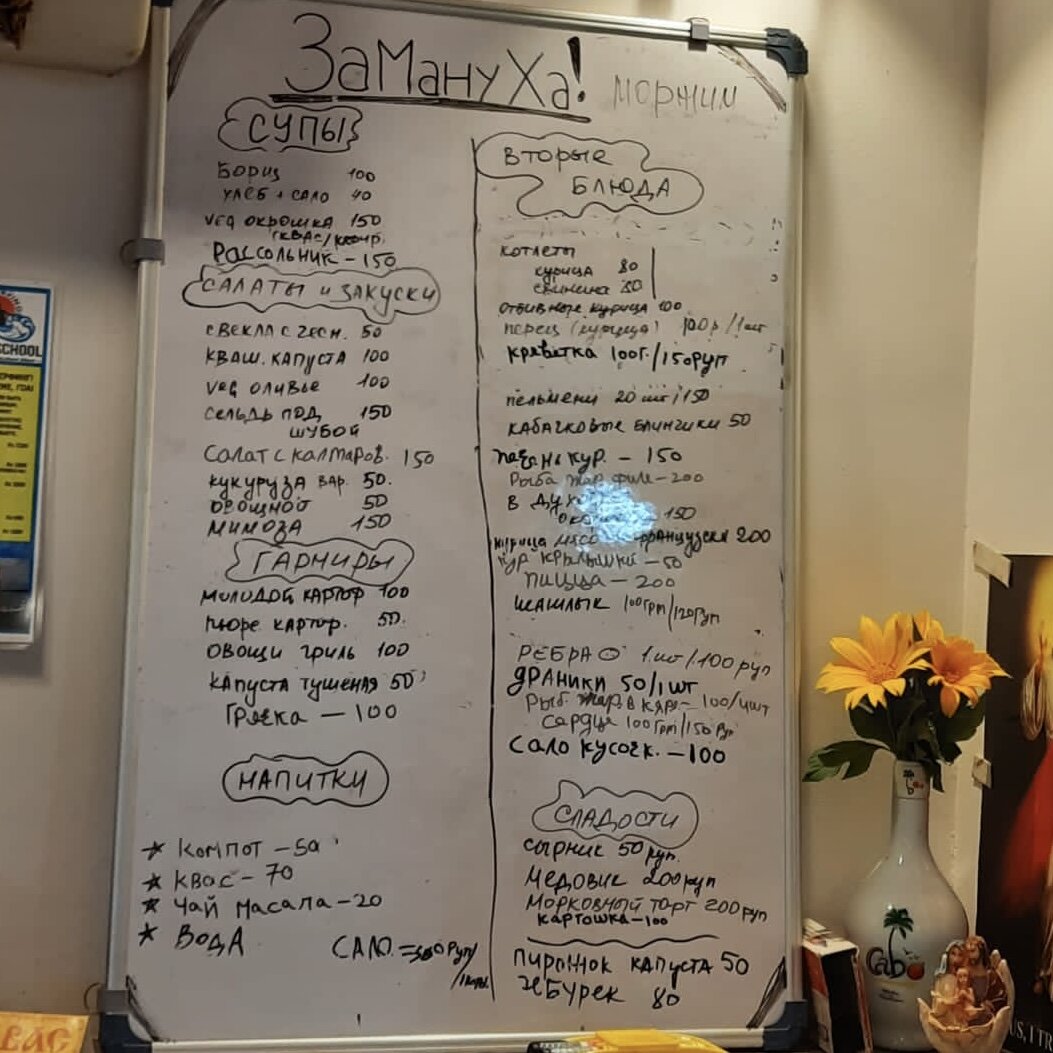 ЗаМануХа! моржим
СУПЫ
БОРЩ 100
ХЛЕБ + САЛО 40
VEG ОКРОШКА 150
РАССОЛЬНИК - 150
САЛАТЫ и ЗАКУСКИ
СВЕКЛА С ЧЕСН. 50
КВАШ. КАПУСТА 100
VEG ОЛИВЬЕ 100
СЕЛЬДЬ ПОД 150
ШУБОЙ
САЛАТ С КАЛМАРОВ. 150
КУКУРУЗА ВАР. 50.
ОВОЩНОЙ 50
МИМОЗА 150
ГАРНИРЫ
МОЛОДОЙ КАРТОФ 100
ПЮРЕ КАРТОФ. 50.
ОВОЩИ ГРИЛЬ 100
КАПУСТА ТУШЕНАЯ 50
ГРЕЧКА — 100
НАПИТКИ
КОМПОТ - 50
КВАС - 70
ЧАЙ МАСАЛА - 20
ВОДА
САЛО
ВТОРЫЕ
БЛЮДА
КОТЛЕТЫ
КУРИЦА 80
СВИНИНА 80
ОТБИВНЫЕ КУРИЦА 100
ПЕРЕЦ (КУРИЦА) 100р/1шт
КРЕВЕТКА 100Г./150РУП
ПЕЛЬМЕНИ 20 шт/150
КАБАЧКОВЫЕ БЛИНЧИКИ 50
ПЕЧЕНЬ КУР. - 150
РЫБА ЖАР ФИЛЕ - 200
В
150
КУРИЦА МЯСО ФРАНЦУЗСКИ 200
КУР КРЫЛЫШКИ - 50
ПИЦЦА - 200
ШАШЛЫК 100грм/120руп
РЕБРА 1.шт/100 руп
ДРАНИКИ 50/1шт
РЫБ. ЖАР. 100/
СЕРДЦА 100грм/150 Руп
САЛО КУСОЧК. - 100
СЛАДОСТИ
СЫРНИК 50 руп.
МЕДОВИК 200 руп
МОРКОВНЫЙ ТОРТ 200 руп
КАРТОШКА - 100
ПИРОЖОК КАПУСТА 50
ЧЕБУРЕК 80
SCHOOL
Cabo